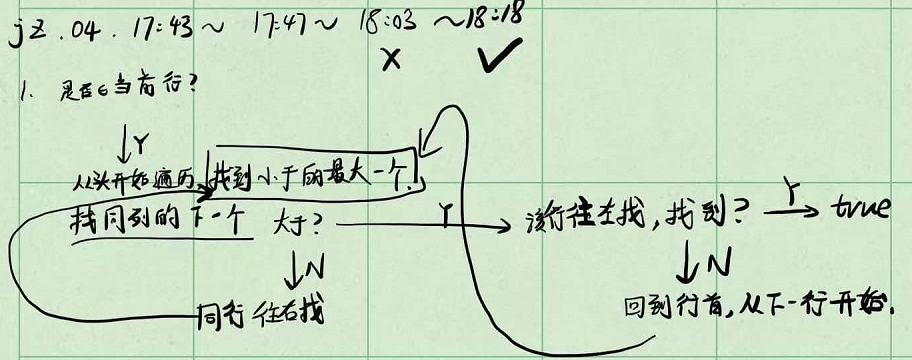 jz.04. 17:43~ 17:47~ 18:03 ~18:18
× ✓
1. 是否∈当前行?
↓Y
从头开始遍历,找到小于的最大一个.
找同列的下一个 大于? Y→ 该行往左找,找到? Y→ true
↓N ↓N
同行往右找 回到行首,从下一行开始.